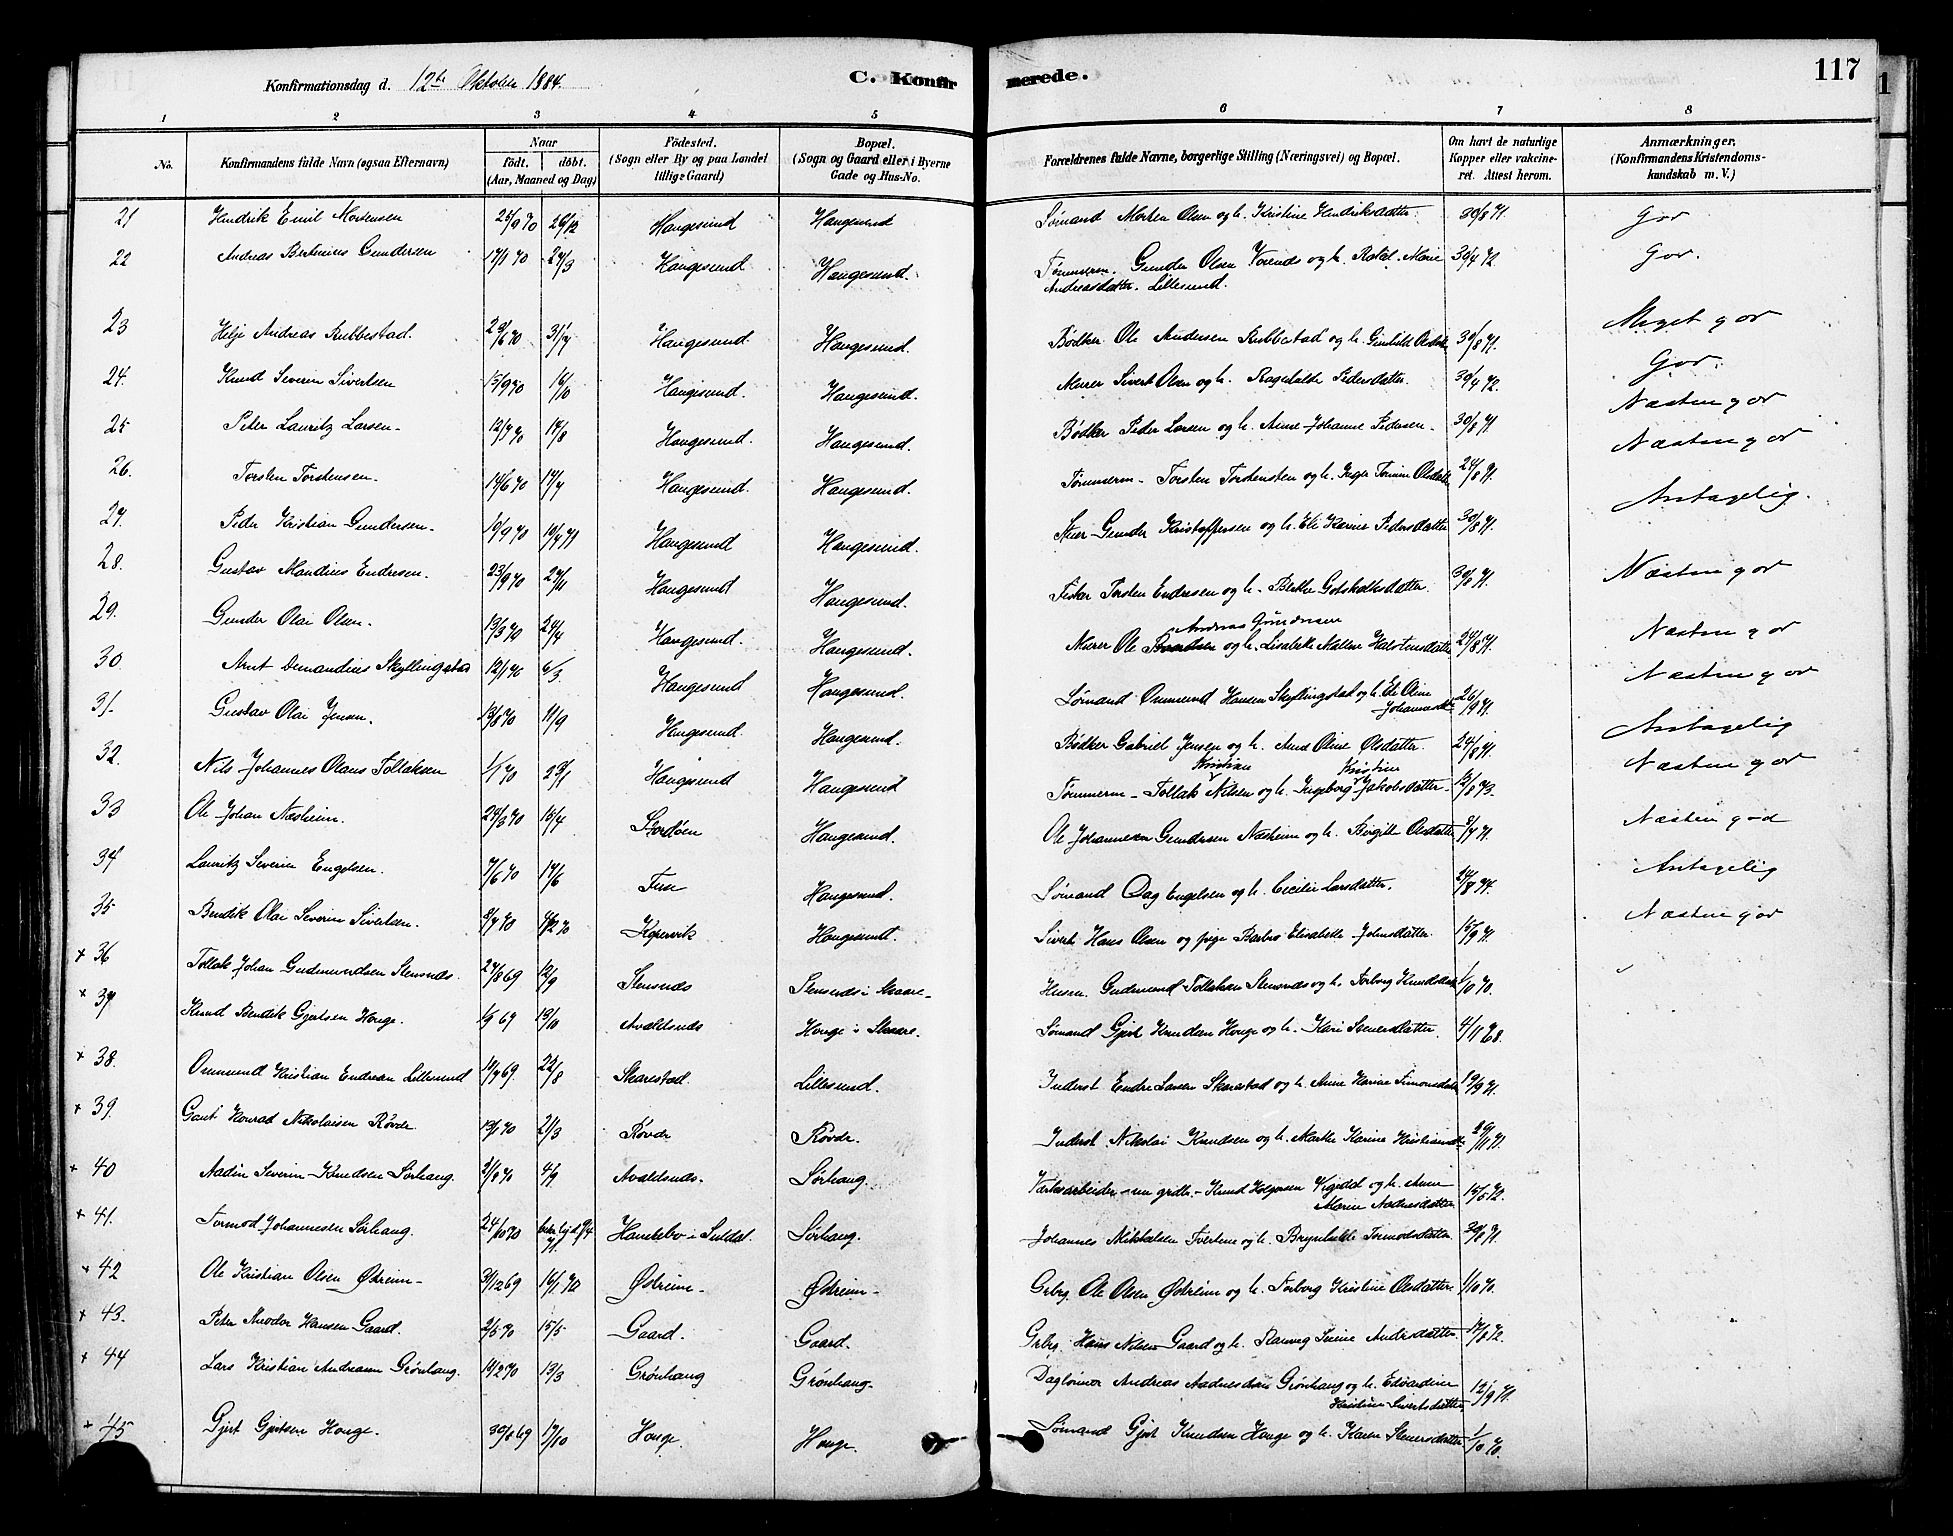 Konfirmationsdag d. 12te Oktober 1884.
C. Konfirmerede.
117
1 2 3 4 5 6 7 8
No.
Konfirmandens fulde Navn (ogsaa Efternavn)
Naar
födt. döbt.
(Aar, Maaned og Dag)
Födested.
(Sogn eller By og paa Landet
tillige Gaard)
Bopæl.
(Sogn og Gaard eller i Byerne
Gade og Hus-No.
Forældrenes fulde Navne, borgerlige Stilling (Næringsvei) og Bopæl.
Om havt de naturlige
Kopper eller vakcine-
ret. Attest herom.
Anmærkninger.
(Konfirmandens Kristendoms-
kundskab m. V.)
21 Hendrik Emil Mortensen 25/9 70 26/12 Haugesund Haugesund Sømand Morten Olsen og h. Kristine Hendriksdatter 30/8 71. Gor
22 Andreas Bertinius Gundersen 17/1 70 27/3 Haugesund Haugesund. Tømmerm. Gunder Olsen og h. Marie 30/4 72. Gor.
Andreasdatter. Lillesund.
23 Helje Andreas Rubbestad. 29/6 70 31/7 Haugesund Haugesund. Bødker Ole Andersen Rubbestad og h. Gunhild 30/8 71. Meget gor
24. Knud Severin Sivertsen 15/9 70 16/10 Haugesund. Haugesund. Murer Sivert Olsen og h. Ragnhilde Pedersdatter. 30/4 72. Gor.
25 Peter Lauritz Larsen 12/7 70 14/8 Haugesund. Haugesund. Bødker Peder Larsen og h. Anne Johanne Pedersen 30/8 71. Næsten gor
26. Torsten Torstensen. 14/6 70 17/7 Haugesund. Haugesund. Tømmerm Torsten Torstensen og h. Inger 24/8 71. Næsten gor
27. Peder Kristian Gundersen 19/9 70 10/4 71 Haugesund Haugesund. Gunder Kristoffersen og h. Eli Karine Pedersdatter 30/8 71. Antagelig.
28. Gustav Mandius Endresen. 23/9 70 27/11 Haugesund Haugesund. Fisker Torsten Endresen og h. Gotskalksdatter. 30/8 71. Næsten gor
29. Gunder Olai Olsen. 13/3 70 24/4 Haugesund. Haugesund. Murer Ole Andreas og h. Lisabeth Malene Halstensdatter 24/8 71. Næsten gor
30 Arnt Demandius Skyllingstad 12/1 70 6/3 Haugesund Haugesund. Sømand Ommund Hansen Skyllingstad og h. Eli Oline 26/9 71. Næsten gor
31. Gustav Olai Jensen. 13/8 70 11/9 Haugesund. Haugesund. Bødker Gabriel Jensen og h. Ane Oline Olsdatter. 24/8 71. Antagelig
32. Nils Johannes Olaus Tollaksen 1/1 70 23/1 Haugesund Haugesund Tømmerm Tollak Kristian Nilsen og h. Ingeborg Kristine Jakobsdatter 13/8 73. Næsten gor
33 Ole Johan Næsheim. 24/3 70 15/4 Stordøen Haugesund. Ole Johannesen Gundersen Næsheim og h. Birgitte Olsdatter 5/7 71. Næsten god
34 Lauritz Severin Engelsen. 7/6 70 14/6 Haugesund. Sømand Dag Engelsen og h. Cecilie Larsdatter. 24/8 74. Antagelig
35 Bendik Olai Severin Sivertsen. 8/7 70 Kopervik Haugesund. Sivert Hans Olsen og pige Barbro Elisabeth Johnsdatter 15/9 71. Næsten gor
× 36 Tollak Johan Gudmundsen Stensnes. 27/8 69 12/9 Stensnes Stensnes i Skaare Husm. Gudmund Tollaksen Stensnes og h. Torborg Knudsdatter 1/10 70.
× 37 Knud Bendik Gjertsen Houge. 1/9 69 13/10 Avaldsnes Houge i Skaare. Sømand Gjert Knudsen Houge og h. Kari Stenersdatter 4/11 68.
× 38. Ommund Kristian Endresen Lillesund 19/7 69. 22/8 Skarestad. Lillesund. Inderst Endre Larsen Skarestad og h. Anne Karine 19/9 71.
× 39. Gaut Konrad Nikolaisen Røvde 13/1 70 21/3 Røvde Røvde. Inderst Nikolai Knudsen og h. Marthe Karine 29/11 71.
× 40 Aadin Severin Knudsen Sørhaug. 3/8 70 4/9 Avaldsnes. Sørhaug. Knud Holgersen og h. Anne 15/5 72.
Marie Aadnesdatter
× 41. Tormod Johannesen Sørhaug. 24/10 70 i Suldal. Sørhaug. Johannes Mikkelsen Tveitene og h. Brynhilde Tormodsdatter. 30/8 71.
× 42 Ole Kristian Olsen Østreim 31/12 69 16/1 70 Østreim Østreim Grbrg. Ole Olsen Østreim og h. Torborg Kristine Olsdatter 1/10 70.
× 43. Peter Teodor Hansen Gaard. 2/5 70 15/5 Gaard. Gaard. Grbrg. Hans Nilsen Gaard og h. Ranveg Serine Andersdatter 17/8 72.
× 44 Lars Kristian Andreasen Grønhaug. 14/2 70 13/3 Grønhaug Grønhaug Daglønner Andreas Aadnesen Grønhaug og h. Edvardine 12/9 71.
Kristine Sivertsdatter
× 45 Gjert Gjertsen Houge. 30/8 69 17/10 Houge. Houge. Sømand Gjert Knudsen Houge og h. Karen Stenersdatter 1/10 70.